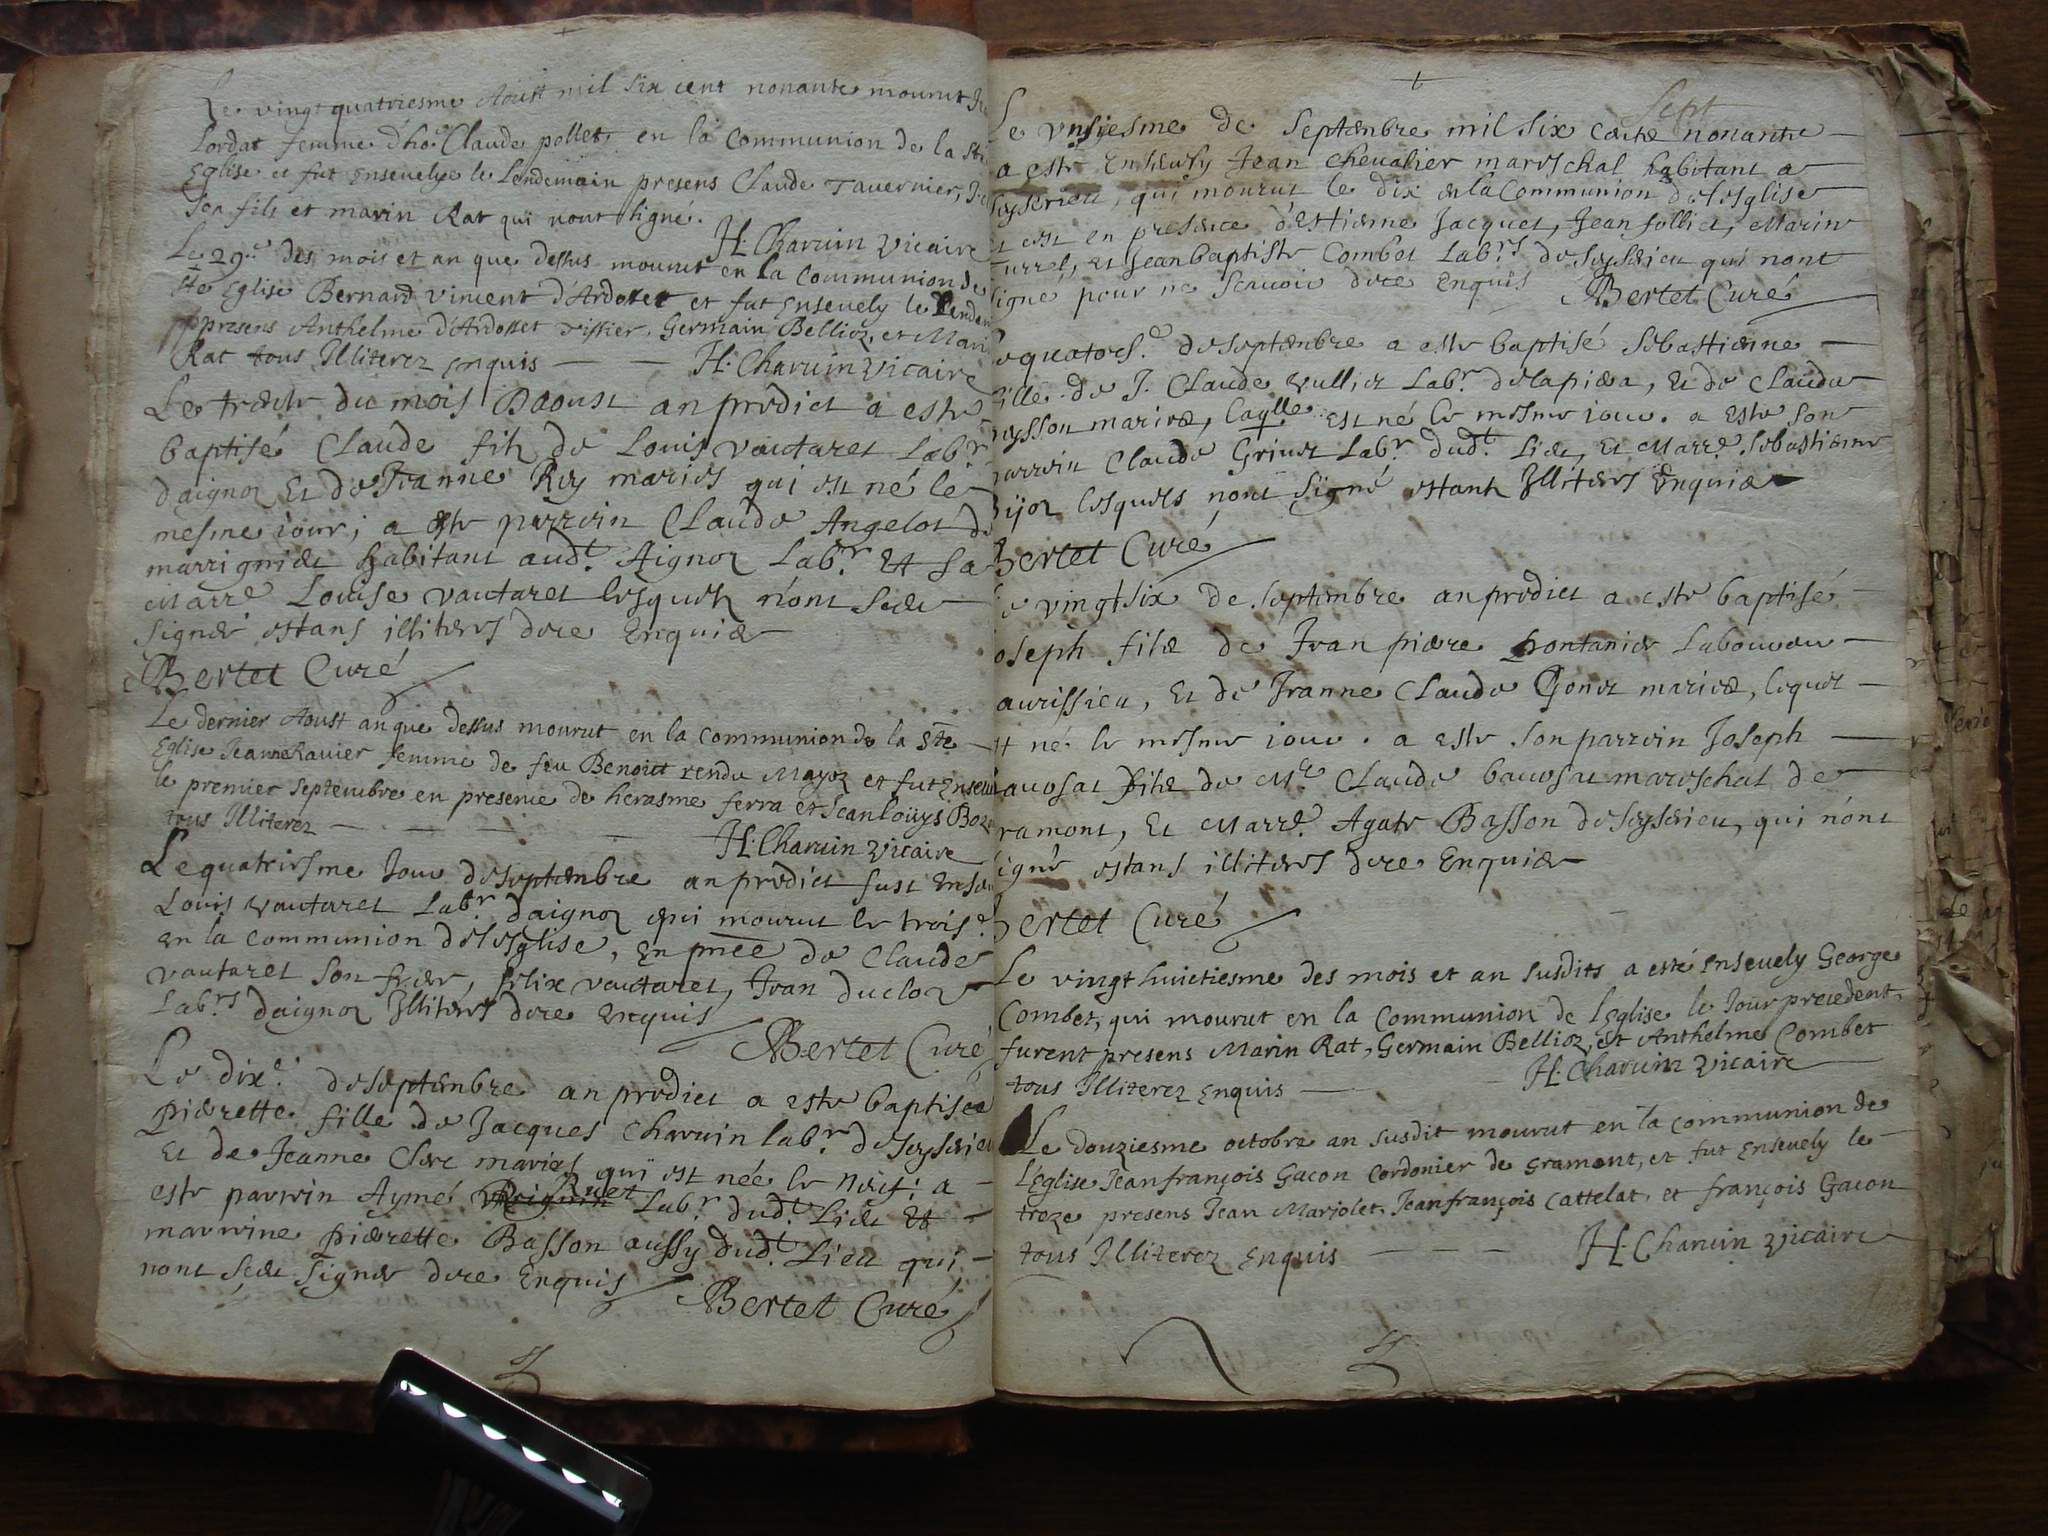 Le vingt quatriesme Aoust mil six cent nonante mourut
Lordat femme d'ho. Claude pollet, en la Communion de la Ste
Eglise et fut Ensevelye le Lendemain presens Claude Tavernier,
son fils et marin Rat qui n'ont signé.
H. Charuin Vicaire
Le 29.e des mois et an que dessus mourut en la Communion de
Ste Eglise Bernard Vincent d'Ardosset et fut Ensevely le Lendem
presens Anthelme d'Ardosset Germain Bellioz, et Mari
Rat tous Illiterez enquis
H. Charuin Vicaire
Le trente du mois Daoust an predict a este
baptisé Claude filz de Louis Vautaret Labr.
daignoz Et de Jeanne Rey maries qui est né le
mesme iour; a este parrein Claude Angelot de
marrignieu habitant audt. Aignoz Labr. Et sa
Marre. Louise Vautaret lesquelz n'ont sceu
signer estans illiteres dece Enquis
Bertet Curé
Le dernier Aoust an que dessus mourut en la Communion de la Ste
Eglise Jeanne Ravier femme de feu Benoict rendu Mayoz et fut Enseve
le premier Septembre en presence de herasme ferra et Jean Loüys Boz
tous Illiterez
H. Charuin Vicaire
Le quatriesme Jour de septembre an predict fust Ensev
Louis Vautaret Labr. daignoz qui mourut le trois.e
en la Communion de lesglise, En pnce de Claude
Vautaret son frere, felix vautaret, Jean ducloz
Labrs. daignoz Illiteres dece enquis
Bertet Curé
Le dix.e de septembre an predict a este baptisée
pierrette fille de Jacques Charuin labr. de seyssrieu
Et de Jeanne Clerc maries qui est née le neuf: a
este parrein Aymé Labr. dudt. Lieu Et
marrine pierrette Basson aussy dudt. Lieu qui
n'ont sceu signer dece Enquis
Bertet Curé
Sept
Le unsiesme de Septembre mil six cents nonante
a este Ensevely Jean Chevalier mareschal habitant a
seyserieu, qui mourut le dix en la Communion de lesglise
et cest en presence d'Estienne Jacquet, Jean follict, Marin
Turrel, et Jean baptiste Combet Labrs. de seyserieu qui n'ont
signé pour ne scavoir dece enquis
Bertet Curé
Le quators.e de septembre a este baptisé Sebastienne
fille de J. Claude Vulliez Labr. de lapiera, Et de Claude
Buysson maries, laqlle est né le mesme iour. a este son
parrein Claude Grinet Labr. dudt. Lieu, Et Marre. Sebastienne
lesquels n'ont signé estant Illiteres Enquis
Bertet Curé
Le vingt six de Septembre an predict a este baptisé
Joseph filz de Jean pierre fontanier Laboureur
aurissieu, Et de Jeanne Claude Gonet maries, lequel
est né le mesme iour. a este son parrein Joseph
filz de Mr. Claude mareschal de
Cramont, Et Marre. Agate Basson de seyserieu, qui n'ont
signé estans illiteres dece Enquis
Bertet Curé
Le vingt huictiesme des mois et an susdits a esté Ensevely George
Combet, qui mourut en la Communion de lEglise le Jour precedent,
furent presens Marin Rat, Germain Bellioz, et Anthelme Combet
tous Illiterez enquis
H. Charuin Vicaire
Le douziesme octobre an susdit mourut en la communion de
lEglise Jeanfrançois Gacon Cordonier de Cramont, et fut ensevely le
treze presens Jean Marjolet, Jeanfrançois Cattelat, et françois Gacon
tous Illiterez enquis
H. Charuin Vicaire